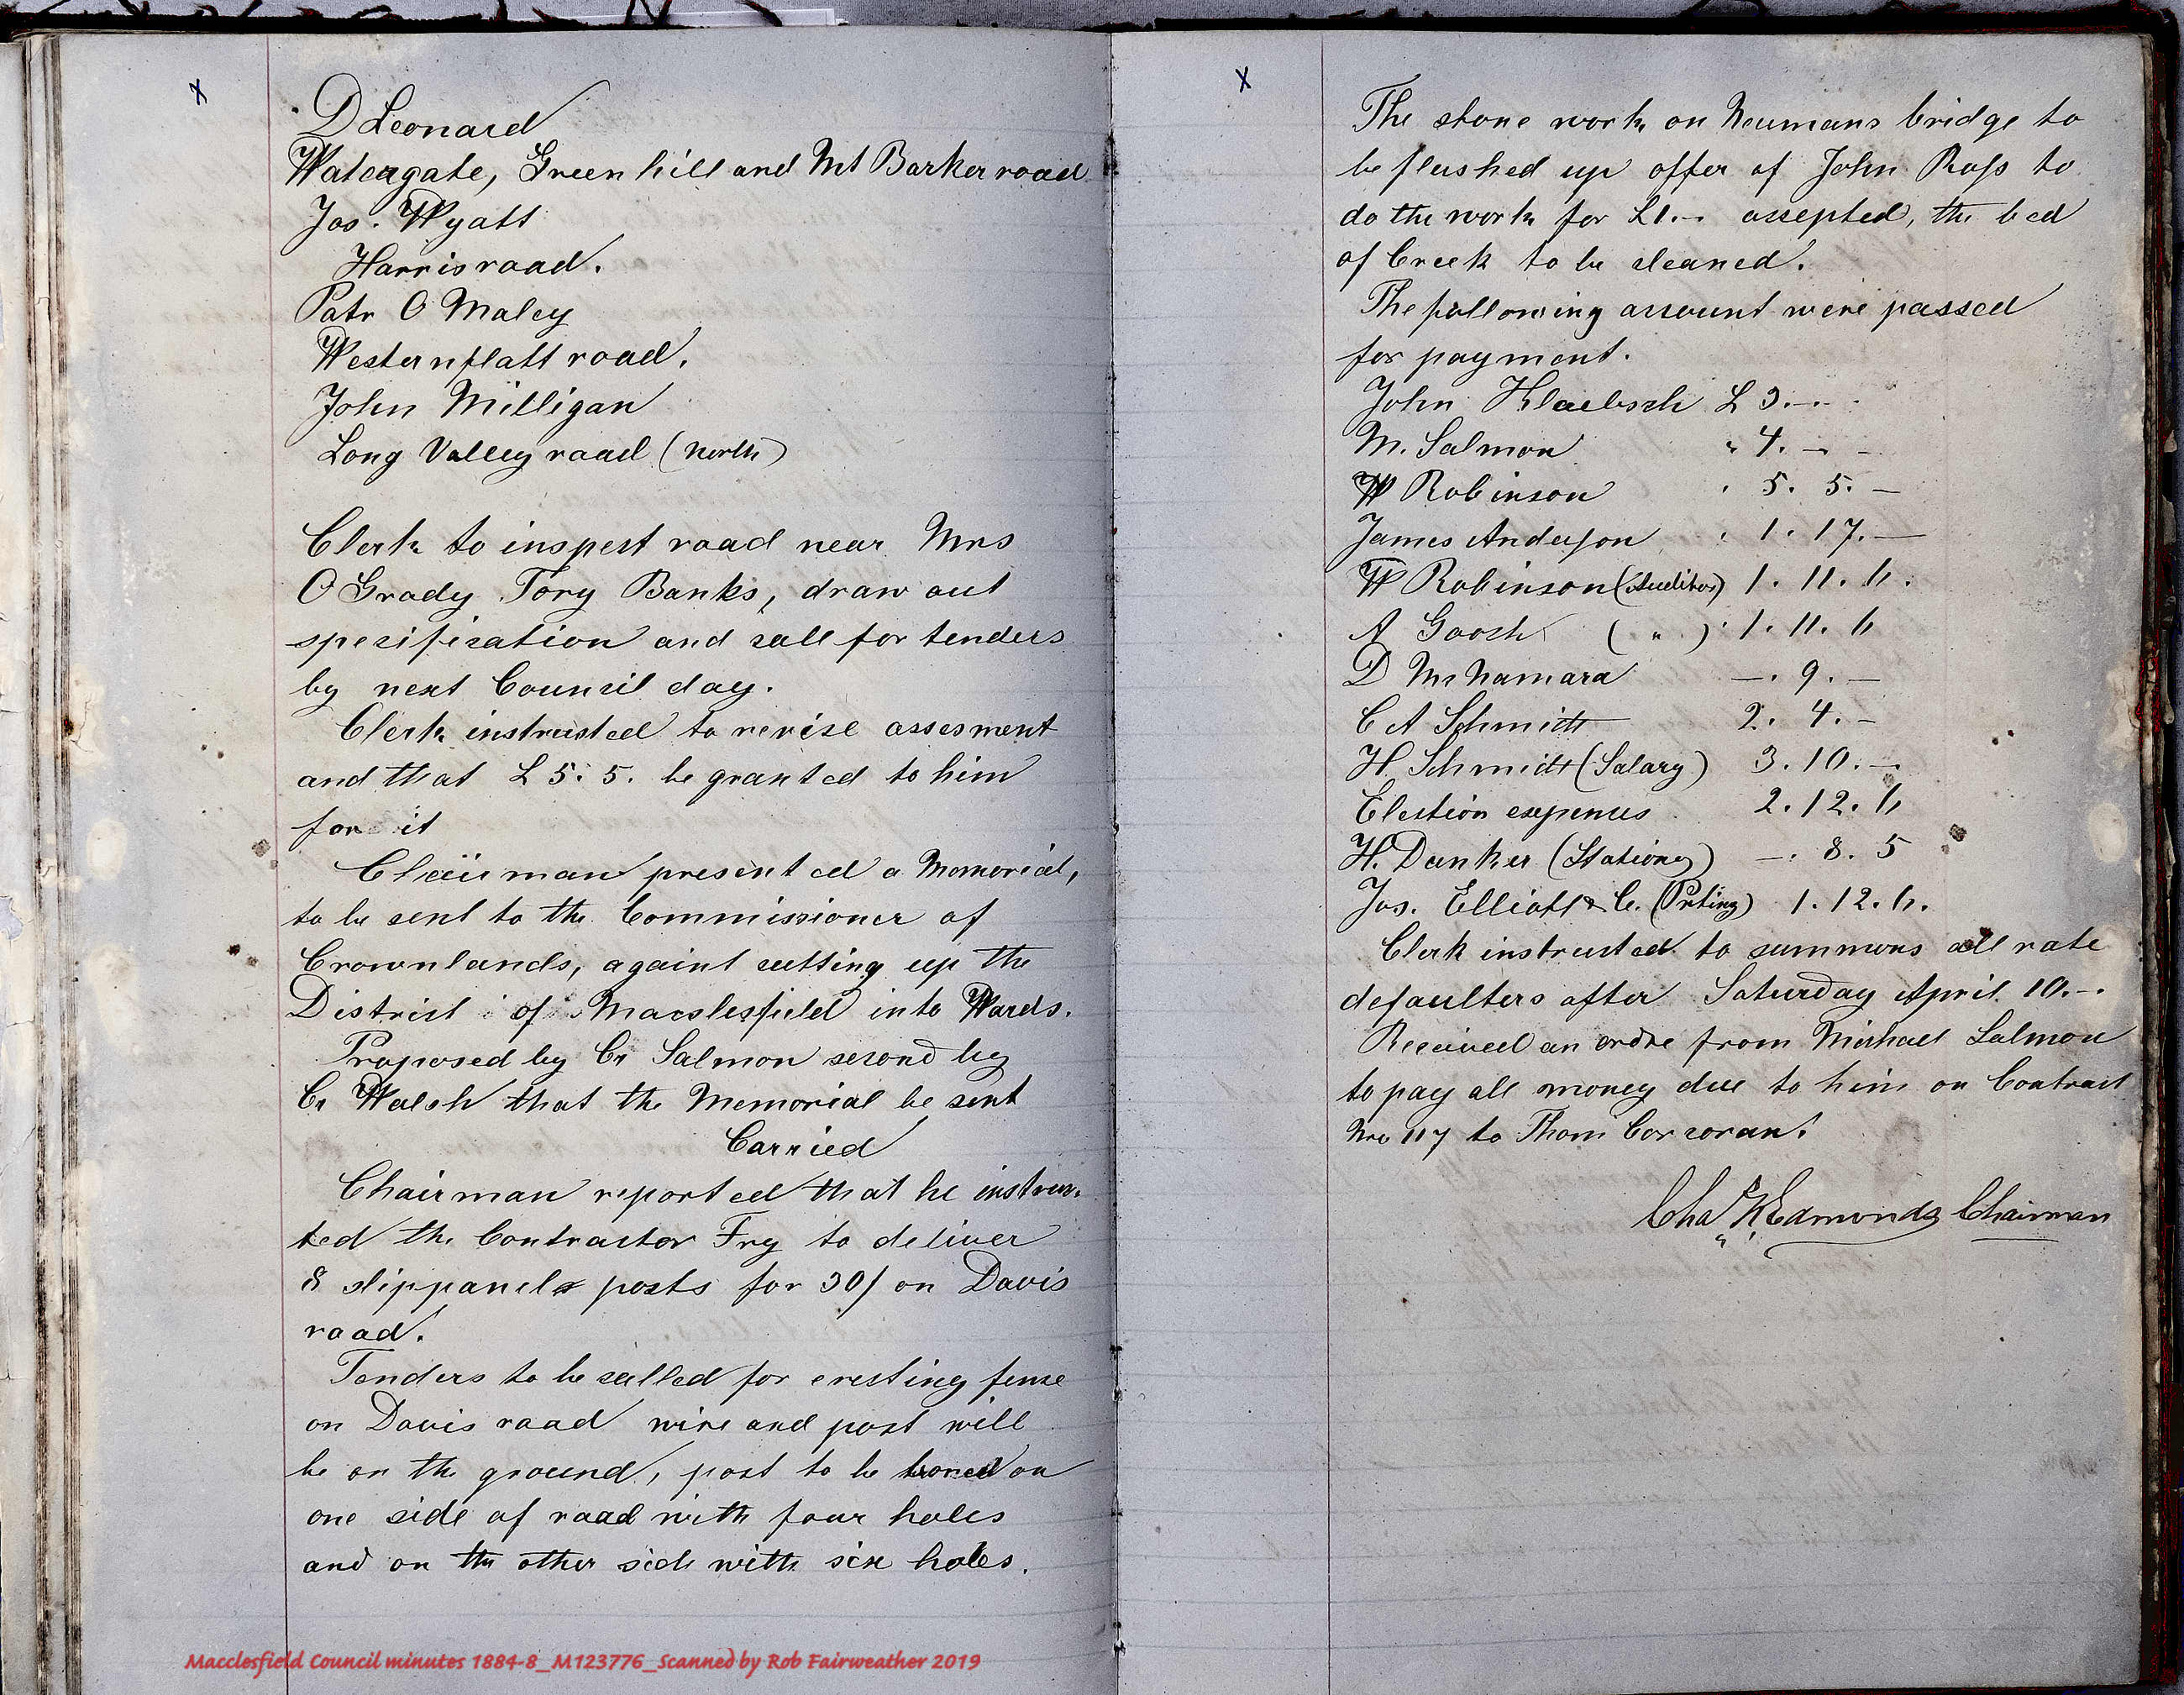 X
D Leonard
Watergate, Greenhill and Mt Barker road
Jos. Wyatt
Harris road.
Patr O Maley
Westernflatt road.
John Milligan
Long Valley road (north)
Clerk to inspect road near Mrs
O Grady Tory Banks, draw out
specification and call for tenders
by next Council day.
Clerk instructed to revise assesment
and that £ 5. 5. be granted to him
for it
Chairman presented a Memorial,
to be sent to the Commissioner of
Crownlands, againt cutting up the
District of Macclesfield into Wards.
Proposed by Cr Salmon second by
Cr Walsh that the Memorial be sent
Carried
Chairman reported that he instruc-
ted the Contractor Fry to deliver
8 slippanels posts for 30/ on Davis
road.
Tenders to be called for erecting fence
on Davis road wire and post will
be on the ground, post to be bored on
one side of road with four holes
and on the other side with six holes.
X
The stone work on Neumans bridge to
be flushed up offer of John Ross to
do the work for £1.- accepted, the bed
of Creek to be cleaned.
The following account were passed
for payment.
John Klaebsch £ 3.-.-
M. Salmon " 4. - -
W Robinson " 5. 5. -
James Anderson " 1. 17. -
W Robinson (Auditor) 1. 11. 6.
A Gooch ( " ) 1. 11. 6
D McNamara -. 9. -
C A Schmidt 2. 4. -
H Schmidt (Salary) 3. 10. -
Election expenses 2. 12. 6
H. Dunker (Stationy) -. 8. 5
Jos. Elliott & C. (Prting) 1. 12. 6.
Clerk instructed to summons all rate
defaulters after Saturday April 10.-.
Received an ordre from Michael Salmon
to pay all money due to him on Contract
Nro 117 to Thom Corcoran.
Chas Edmonds Chairman
Macclesfield Council minutes 1884-8_M123776_Scanned by Rob Fairweather 2019